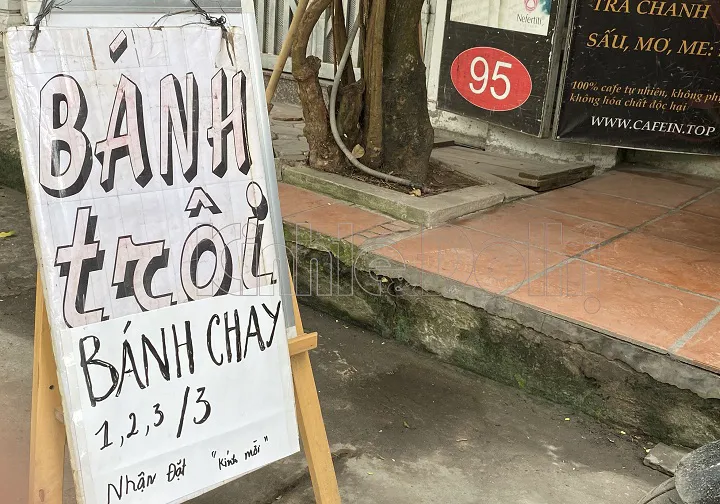 BÁNH
trôi
BÁNH CHAY
1,2,3/3
Nhận Đặt "Kính mời"
Nefertiti
95
TRÀ CHANH
SẤU, MƠ, ME:
100% cafe tự nhiên, không
không hóa chất độc hại
WWW.CAFEIN.TOP